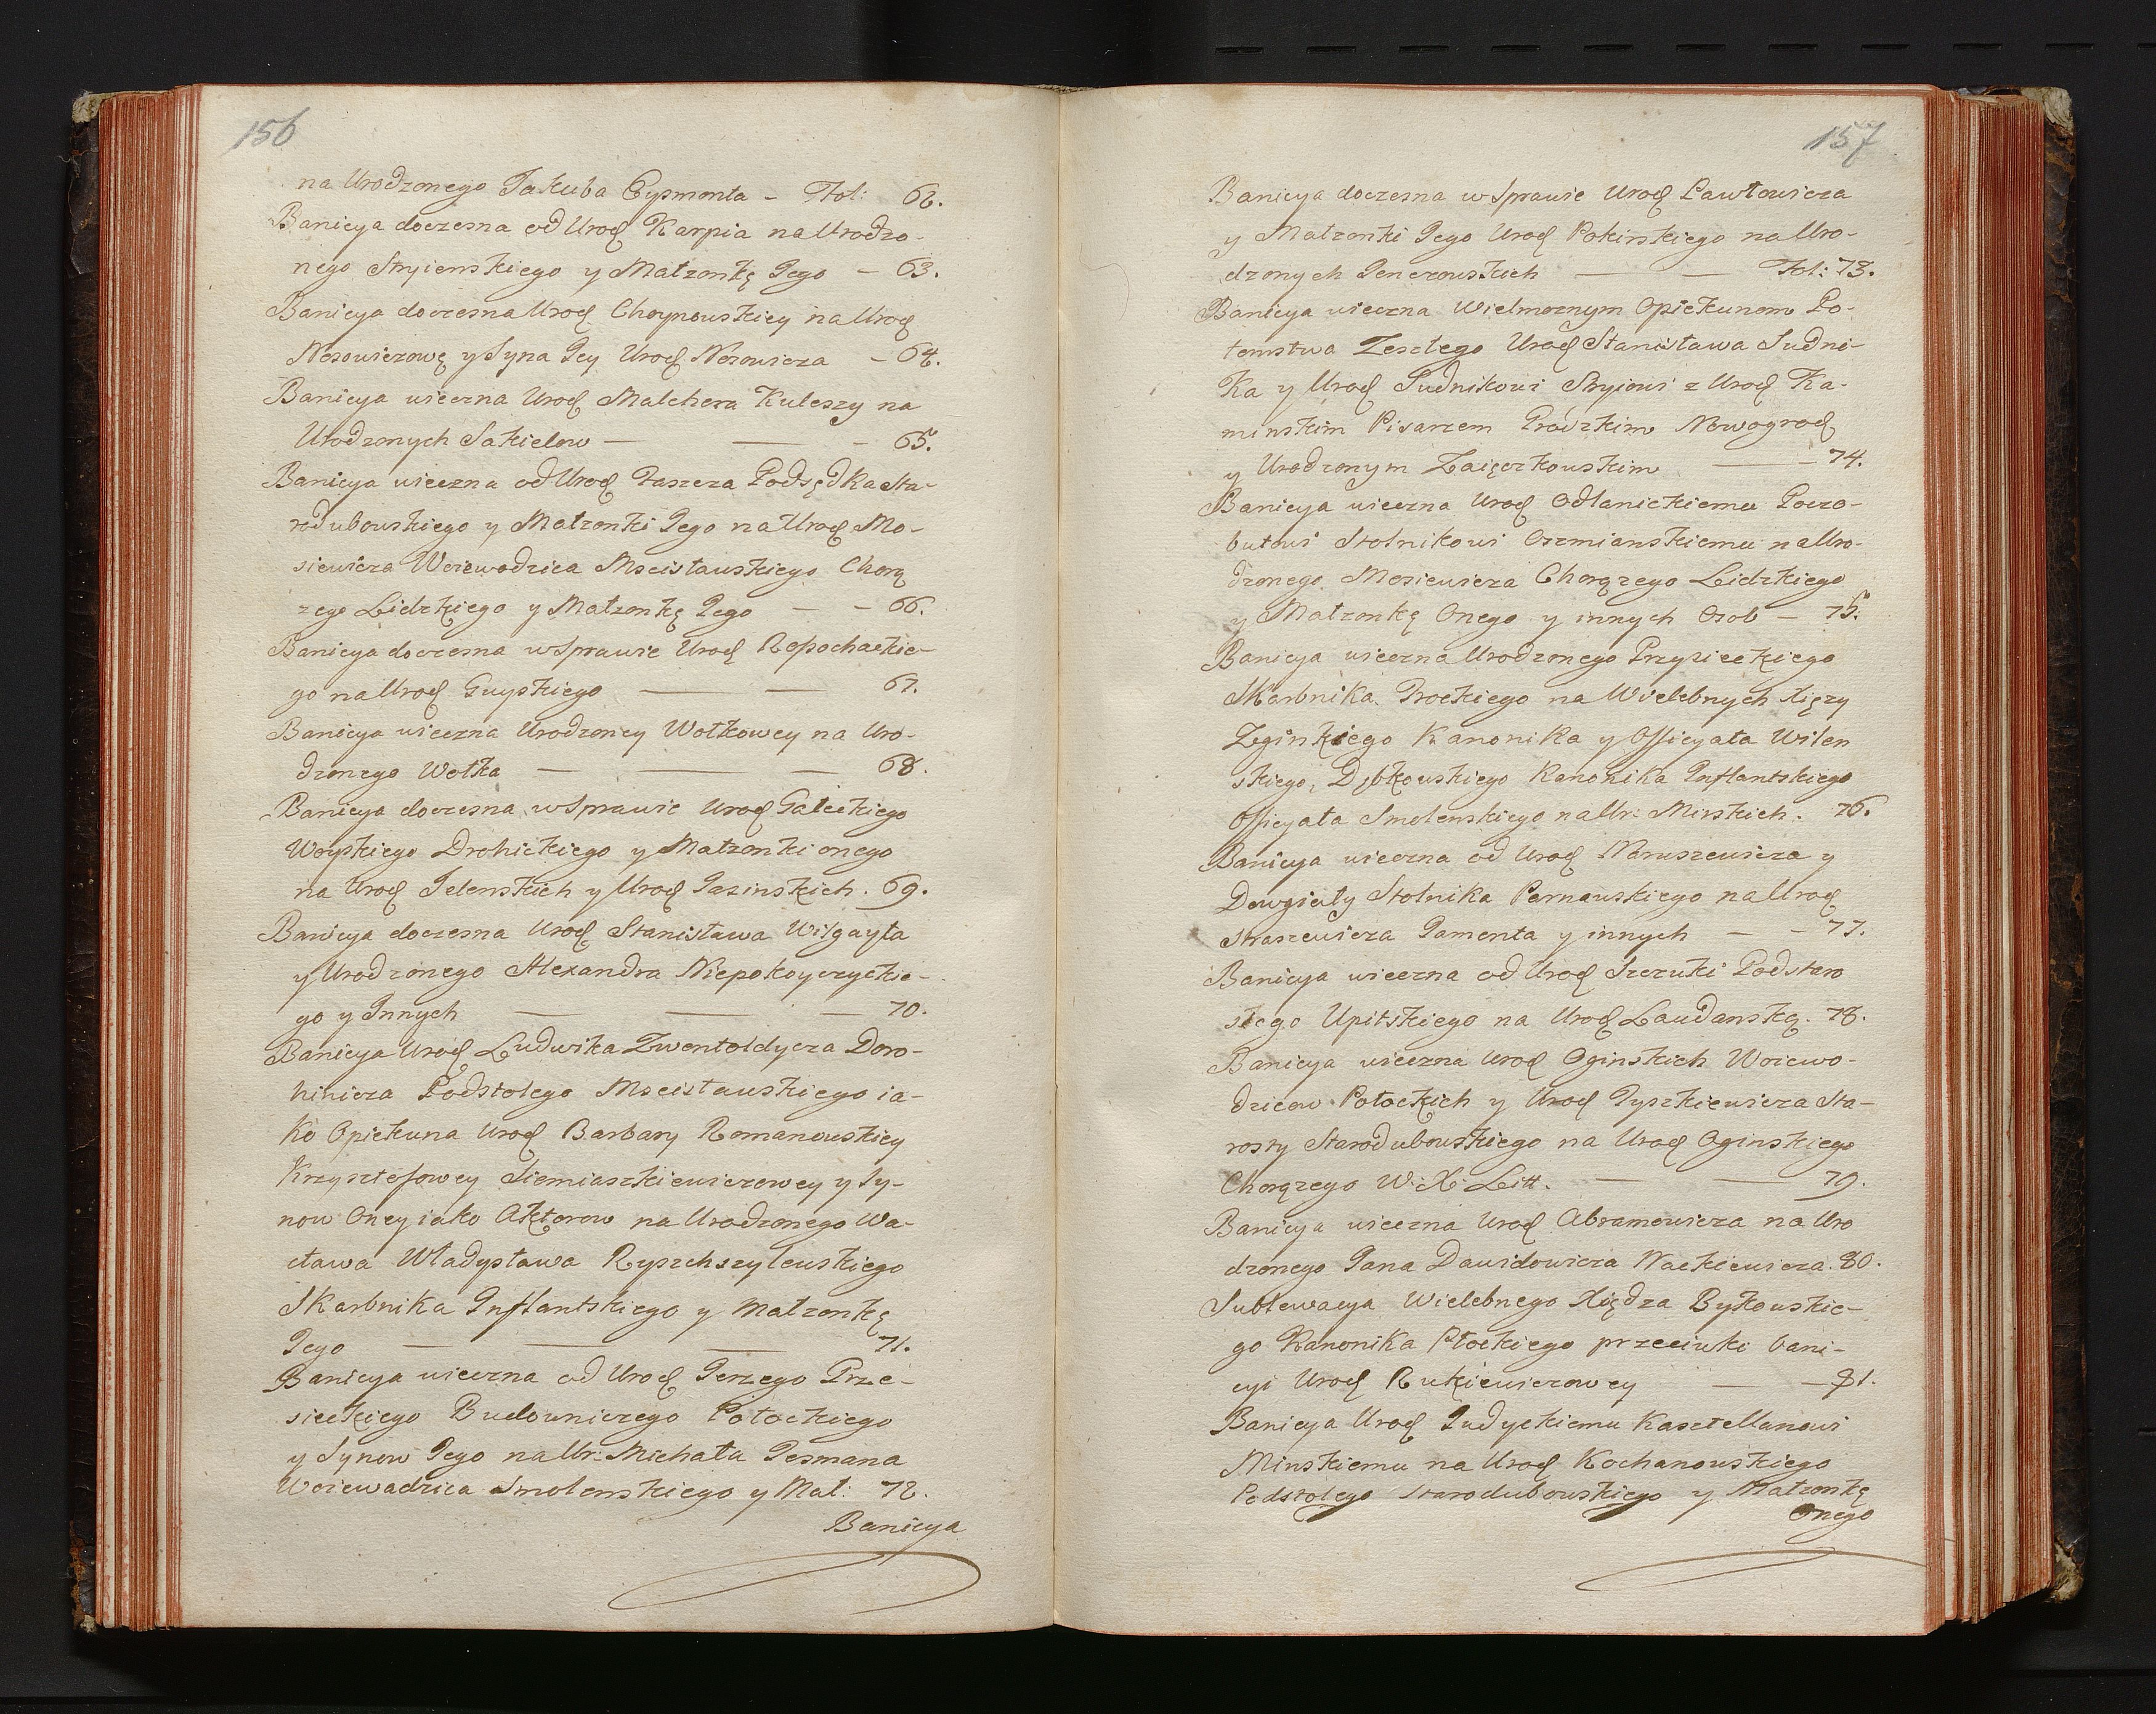 156
na Urodzonego Jakuba Eysmonta – Fol: 62.
Banicya doczesna od Urod Karpia na Urodzo-
nego Stryienskiego y Małzonkę Jego – 63.
Banicya doczesna Urod Choynowskiey na Urod
Nosowiczowę y Syna Jey Urod Nosowicza – 64.
Banicya wieczna Urod Malchera Kuleszy na
Urodzonych Sakielow — — – 65.
Banicya wieczna od Urod Paszcza Podsędka Sta-
rodubowskiego y Małzonki Jego na Urod Mo-
siewicza Woiewodzica Mscisławskiego Chorą
zego Lidzkiego y Małzonkę Jego – – 66.
Banicya doczesna w Sprawie Urod Repochackie-
go na Urod Guyskiego — — 67.
Banicya wieczna Urodzoney Wołkowey na Uro-
dzonego Wołka — — — 68.
Banicya doczesna w Sprawie Urod Gałeckiego
Woyskiego Drohickiego y Małzonki onego
na Urod Jelenskich y Urod Jazinskich. 69.
Banicya doczesna Urod Stanisława Wilgayła
y Urodzonego Alexandra Niepokoyczyckie-
go y Innych — — — 70.
Banicya Urod Ludwika Zwentoldycza Doro-
hinicza Podstolego Mscisławskiego ia-
ko Opiekuna Urod Barbary Romanowskiey
Krzysztofowey Siemiaszkiewiczowey y Sy-
now Oney iako Aktorow na Urodzonego Wa-
cława Władysława Ryszchszylewskiego
Skarbnika Inflantskiego y Małzonkę
Jego — — — 71.
Banicya wieczna od Urod Jerzego Prze-
sieckiego Budowniczego Połockiego
y Synow Jego na Ur: Michała Jesmana
Woiewadzica Smolenskiego y Mał: 72.
Banicya
157
Banicya doczesna w Sprawie Urod Pawłowicza
y Małzonki Jego Urod Pokirskiego na Uro-
dzonych Jenczowskich — — Fol: 73.
Banicya wieczna Wielmoznym Opiekunom Po-
tomstwa Zeszłego Urod Stanisława Sudni-
ka y Urod Sudnikowi Stryiowi z Urod Ka-
minskim Pisarzem Grodzkim Nowogrod
y Urodzonym Zaięczkowskim — – 74.
Banicya wieczna Urod Odlanickiemu Poczo-
butowi Stolnikowi Oszmianskiemu na Uro-
dzonego Mosiewicza Chorązego Lidzkiego
y Małzonkę Onego y innych Osob – 75.
Banicya wieczna Urodzonego Przysieckiego
Skarbnika Trockiego na Wielebnych Xięzy
Zginskiego Kanonika y Officyała Wilen
skiego, Dębkowskiego Kanonika Inflantskiego
Officyała Smolenskiego na Ur: Mirskich. 76.
Banicya wieczna od Urod Naruszewicza y
Dowgiały Stolnika Parnawskiego na Urod
Straszewicza Jamonta y innych – – 77.
Banicya wieczna od Urod Szczuki Podstaro
sciego Upitskiego na Urod Laudanską. 78.
Banicya wieczna Urod Oginskich Woiewo-
dzicow Połockich y Urod Tyszkiewicza Sta-
rosty Starodubowskiego na Urod Oginskiego
Chorązego W: X: Litt. — — 79.
Banicya wieczna Urod Abramowicza na Uro
dzonego Jana Dawidowicza Nackiewicza. 80.
Sublewacya Wielebnego Xiędza Bykowskie-
go Kanonika Płockiego przeciwko bani-
cyi Urod Rukiewiczowey — – 81.
Banicya Urod Judyckiemu Kasztellanowi
Minskiemu na Urod Kochanowskiego
Podstolego Starodubowskiego y Małzonkę
Onego